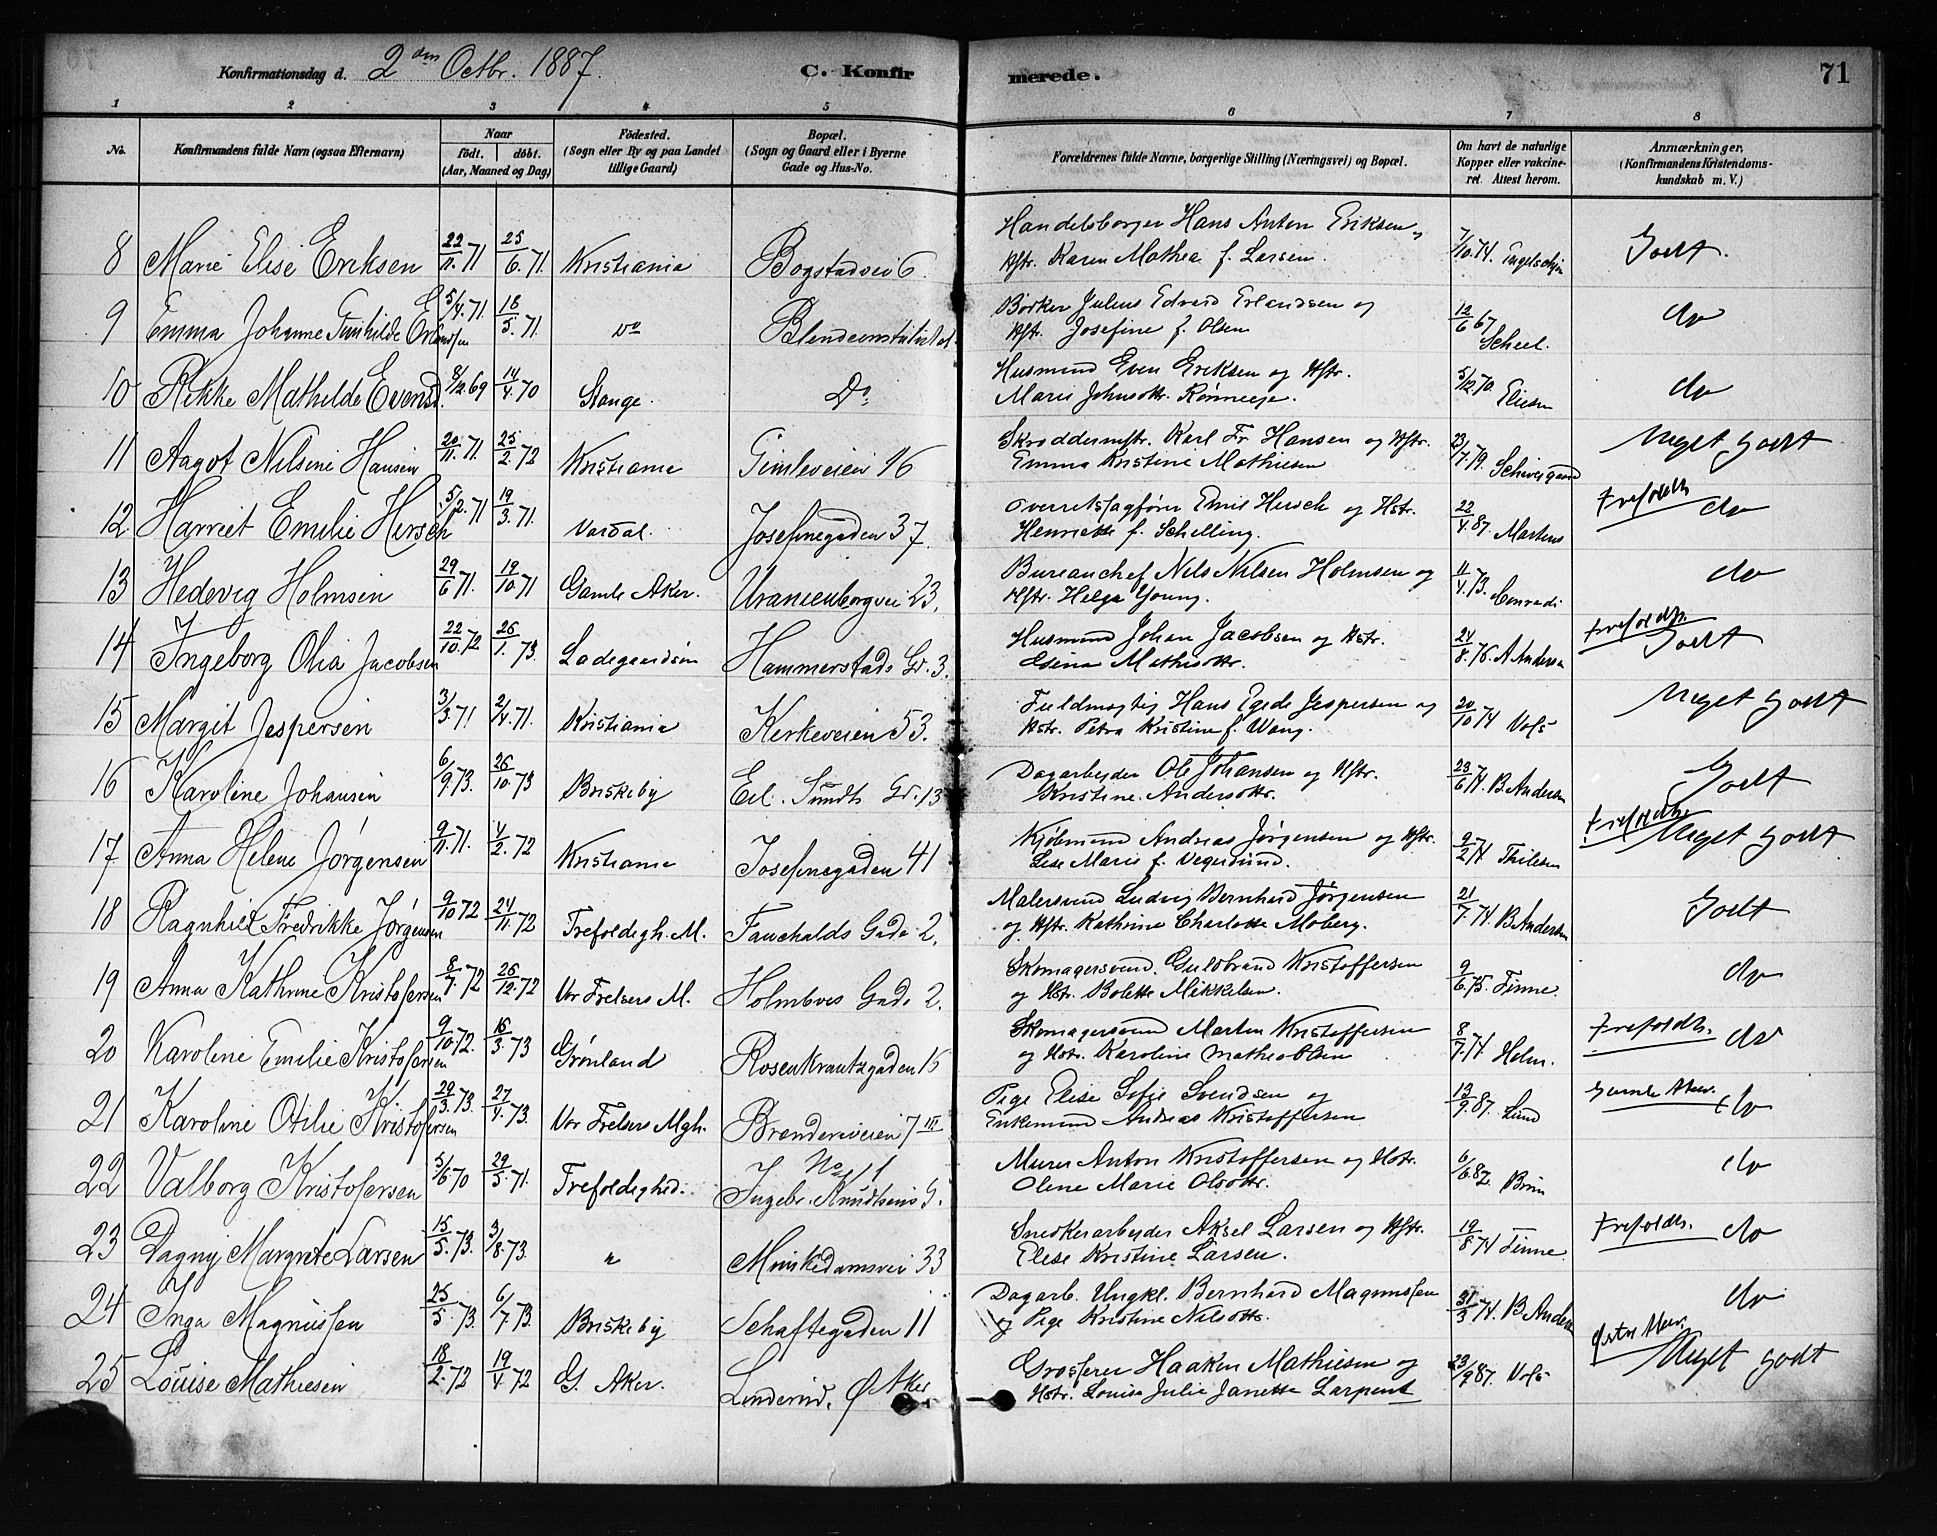 Konfirmationsdag d. 2den Octbr. 1887. C. Konfirmerede. 71
1 2 3 4 5 6 7 8
No. Konfirmandens fulde Navn (ogsaa Efternavn) Naar födt. döbt. (Aar, Maaned og Dag) Födested. (Sogn eller By og paa Landet tillige Gaard) Bopæl. (Sogn og Gaard eller i Byerne Gade og Hus-No. Forældrenes fulde Navne, borgerlige Stilling (Næringsvei) og Bopæl. Om havt de naturlige Kopper eller vakcineret. Attest herom. Anmærkninger, (Konfirmandens Kristendomskundskab m. V.)
8 Marie Elise Eriksen 22/11.71 25/6.71. Kristiania Bogstadvei 6 Handelsborger Hans Anton Eriksen
Hstr. Karen Mathea f. Larsen. 7/10.74. Engelschjøn Godt.
9 Emma Johanne Gunhilde Erlandsen 5/4.71. 18/5.71 do Børker Julius Edvard Erlandsen og
Hstr. Josefine f. Olsen 12/6 67 Scheel. do
10 Rikke Mathilde Evensd. 8/12.69 14/4.70 Stange. Do. Husmand Even Eriksen og Hstr.
Marie Johnsdtr. 5/12.70. do
11 Aagot Nilsine Hansen 20/11.71. 25/2.72 Kristiania Gimleveien 16 Skræddermstr. Karl Fr. Hansen og Hstr.
Emma Kristine Mathiesen 23/7.79. Schweigaard Meget godt
12 Harriet Emilie Hersch 5/2.71 19/3.71. Vardal. Josefinegaden 37. Overretssagfører Emil Hersch og Hstr.
Henriette f. Schelling. 22/4.87. Martens Trefoldh do
13 Hedevig Holmsen 29/6 71. 19/10 71 Gamle Aker. Uranienborgvei 23. Bureauchef Nils Nilsen Holmsen og
Hstr. Helga Young. 11/4.73. Conradi do
14 Ingeborg Olia Jacobsen 22/10.72 26/1.73. Ladegaardsøn Hammerstads Gd. 3. Husmand Johan Jacobsen og Hstr.
Mathisdtr. 24/8.76 A Andersen Trefoldh. Godt
15 Margit Jespersen 3/3.71 2/4.71. Kristiania Kirkeveien 53. Fuldmægtig Hans Egede Jespersen og
Hstr. Petra Kristine f. Wang. 20/10 74 Vols Meget godt
16 Karoline Johansen 6/9.73. 26/10.73 Briskeby Eil. Sundts Gd. 13 Dagarbejder Ole Johansen og Hstr.
Kristine Andersdtr. 23/6 74 B Andersen Godt
17 Anna Helene Jørgensen 9/11.71. 4/2.72 Kristiania Josefinegaden 41 Kjøbmand Andreas Jørgensen og Hstr.
Lise Marie f. Vegersund. 9/2 74 Thilesen Trefoldh. Meget godt
18 Ragnhild Fredrikke Jørgensen 9/10 72 24/11.72 Trefoldigh. M. Fauchalds Gade 2. Malersvend Ludvig Bernhard Jørgensen
og Hstr. Kathrine Charlotte Moberg. 21/7.74 B Andersen Godt
19 Anna Kathrine Kristofersen 8/7.72 26/12.72 Vor Frelsers M. Holmboes Gade 2. Skomagersvend. Guldbrand Kristoffersen
og Hstr. Bolette Mikkelsen. 9/6.75. Finne. do
20 Karoline Emilie Kristofersen 9/10.72. 16/3.73 Grønland Rosenkrantzgaden 15 Skomagersvend Martin Kristoffersen
og Hstr. Karoline Mathea Olsen 8/7.74. Holm. Trefoldh. do
21 Karoline Otilie Kristofersen 29/3.73. 27/4.73. Vor Frelsers Mgh. Brænderiveien 7 III Pige Elise Sofie Svendsen og
Enkemand Andreas Kristoffersen 13/9.87. Lund Gamle Aker. do
22 Valborg Kristofersen 5/6.70 29/5.71. Trefoldighed. No 11
Ingebr. Knudtsens G. Murer Anton Kristoffersen og Hstr.
Olene Marie Olsdtr. 6/6.82. Bruun do
23 Dagny Margrete Larsen 15/5.73. 3/8.73. " Munkedamsvei 33 Snedkerarbejder Aksel Larsen og Hstr.
Elise Kristine Larsen. 19/8 74 Finne Trefoldh. do
24 Inga Magnussen 25/5.73. 6/7.73. Briskeby Schaftegaden 11 Dagarb. Ungkl. Bernhard Magnussen
og Pige Kristine Nilsdtr. 31/3 74. B Andersen do
25 Louise Mathiesen 18/2.72 19/4.72 G. Aker. Linderud. Ø Aker Grosserer Haaken Mathiesen og
Hstr. Louise Julie Janette Larpent 23/9 87. Vols Østre Aker. Meget godt